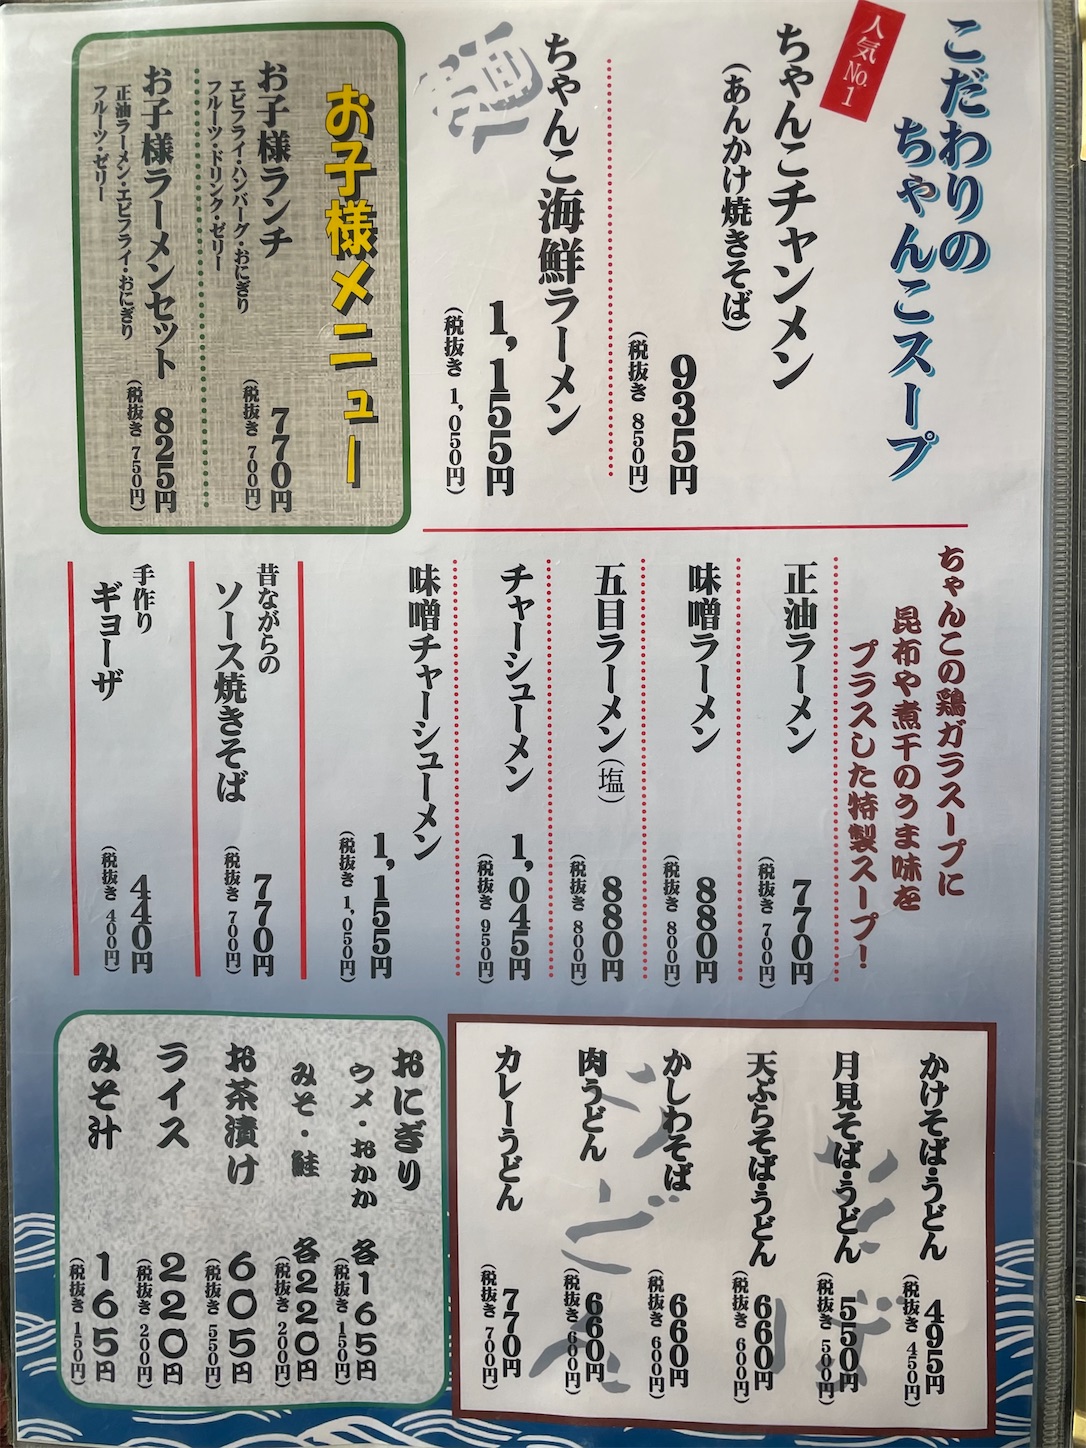 こだわりの
ちゃんこスープ
人気No.1
ちゃんこチャンメン
(あんかけ焼きそば)
935円
(税抜き 850円)
ちゃんこ海鮮ラーメン
1,155円
(税抜き 1,050円)
お子様メニュー
お子様ランチ
エビフライ・ハンバーグ・おにぎり
フルーツ・ドリンク・ゼリー
770円
(税抜き 700円)
お子様ラーメンセット
正油ラーメン・エビフライ・おにぎり
フルーツ・ゼリー
825円
(税抜き 750円)
ちゃんこの鶏ガラスープに
昆布や煮干のうま味を
プラスした特製スープ!
正油ラーメン
770円
(税抜き 700円)
味噌ラーメン
880円
(税抜き 800円)
五目ラーメン(塩)
880円
(税抜き 800円)
チャーシューメン
1,045円
(税抜き 950円)
味噌チャーシューメン
1,155円
(税抜き 1,050円)
昔ながらの
ソース焼きそば
770円
(税抜き 700円)
手作り
ギョーザ
440円
(税抜き 400円)
そば
うどん
かけそば・うどん
495円
(税抜き 450円)
月見そば・うどん
550円
(税抜き 500円)
天ぷらそば・うどん
660円
(税抜き 600円)
かしわそば
660円
(税抜き 600円)
肉うどん
660円
(税抜き 600円)
カレーうどん
770円
(税抜き 700円)
おにぎり
ウメ・おかか 各165円
(税抜き 150円)
みそ・鮭 各220円
(税抜き 200円)
お茶漬け 605円
(税抜き 550円)
ライス 220円
(税抜き 200円)
みそ汁 165円
(税抜き 150円)